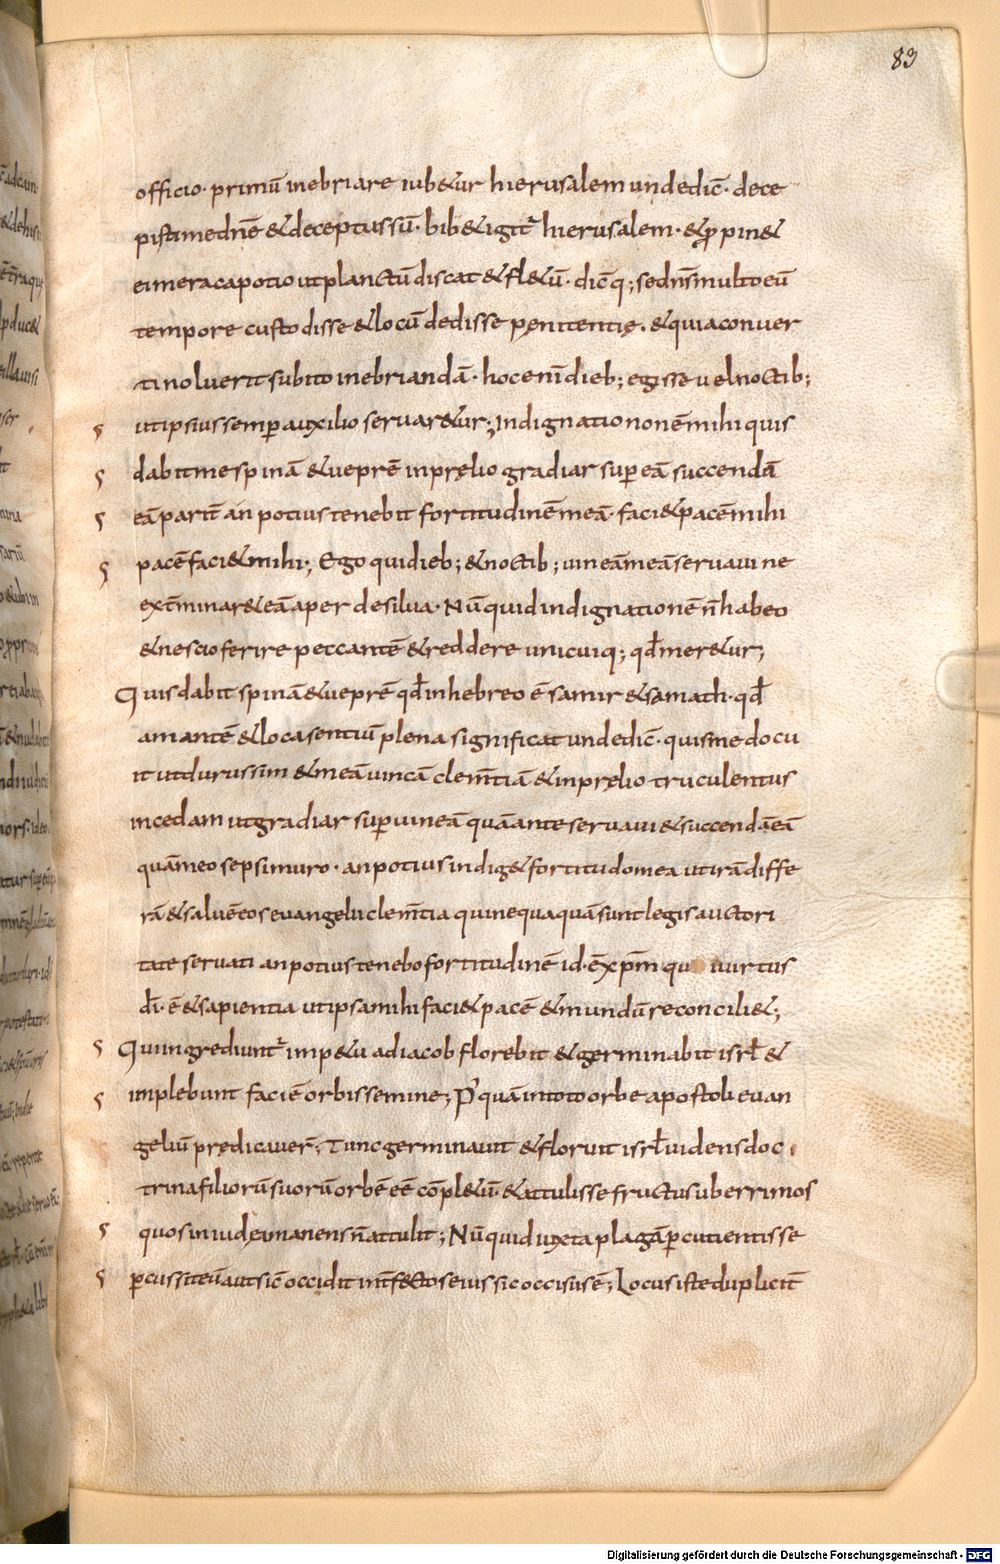 83
officio · primū inebriare iub&ur hierusalem undedic̄ · dece
pistimednē &deceptussū · bib&igit᷑ hierusalem · &ꝓpin&
eimeracapotio utplanctūdiscat &fl&ū · dic̄q; sednr̄smultoeū
tempore custodisse &locū dedisse penitentię · &quiaconuer
ti noluerit subito inebriandā · hocenīdieb; egisse uelnoctib;
utipsiussemꝑ auxilio seruar&ur; Indignatio nonēmihi quis
dabitmespinā &ueprē inpręlio gradiar suꝑeā succendā
eā parit̄ an potius tenebit fortitudinē meā · faci&pacēmihi
pacē faci&mihi; Ego quidieb; &noctib; uineāmeāseruaui ne
ext̄minar&eā aper desilua · Nūquid indignationē n̄habeo
&nescioferire peccantē &reddere unicuiq; qd̄mer&ur;
Quisdabit spinā&ueprē qd̄inhebreo ē samir &samath · qd̄
amantē &locasentiū plena significat undedic̄ · quisme docu
it utdurussim &meāuincā clem̄tiā &inpręlio truculentus
incedam utgradiar suꝑuineā quāanteseruaui&succendāeā
quāmeosepsimuro · anpotius indig&fortitudomea utirādiffe
rā&saluēeosevangelii clem̄tia quinequaquāsuntlegisauctori
tate seruati anpotius tenebofortitudinē id · ēxp̄m qui uirtus
dī · ē &sapientia utipsamihi faci&pacē &mundūreconcili&;
Quiingrediunt᷑ imp&u adiacob florebit &germinabit isrł &
implebunt faciē orbissemine; P᷑quāintotoorbe apostoli euan
geliū prędicauer̄; Tuncgerminauit &floruit isrł uidensdoc
trinafiliorūsuorūorbē eē cōpl&ū · &attulisse fructusuberrimos
quosiniudęimanensn̄attulit; Nūquidiuxtaplagāꝑcutientisse
ꝑcussiteū autsic occidit int̄fectoseius sicoccisusē; Locusisteduplicit̄
Digitalisierung gefördert durch die Deutsche Forschungsgemeinschaft - DFG